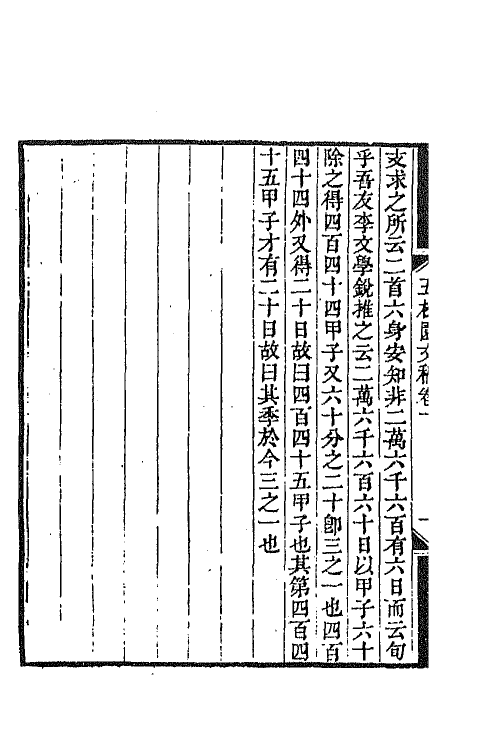 五松園文稿卷一
一
支求之所云二首六身安知非二萬六千六百有六日而云旬
乎吾友李文學銳推之云二萬六千六百六十日以甲子六十
除之得四百四十四甲子又六十分之二十卽三之一也四百
四十四外又得二十日故曰四百四十五甲子也其第四百四
十五甲子才有二十日故曰其季於今三之一也